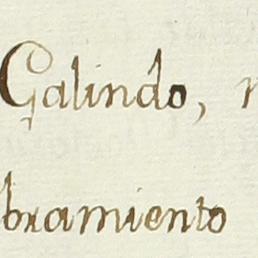 Galindo,
bramiento